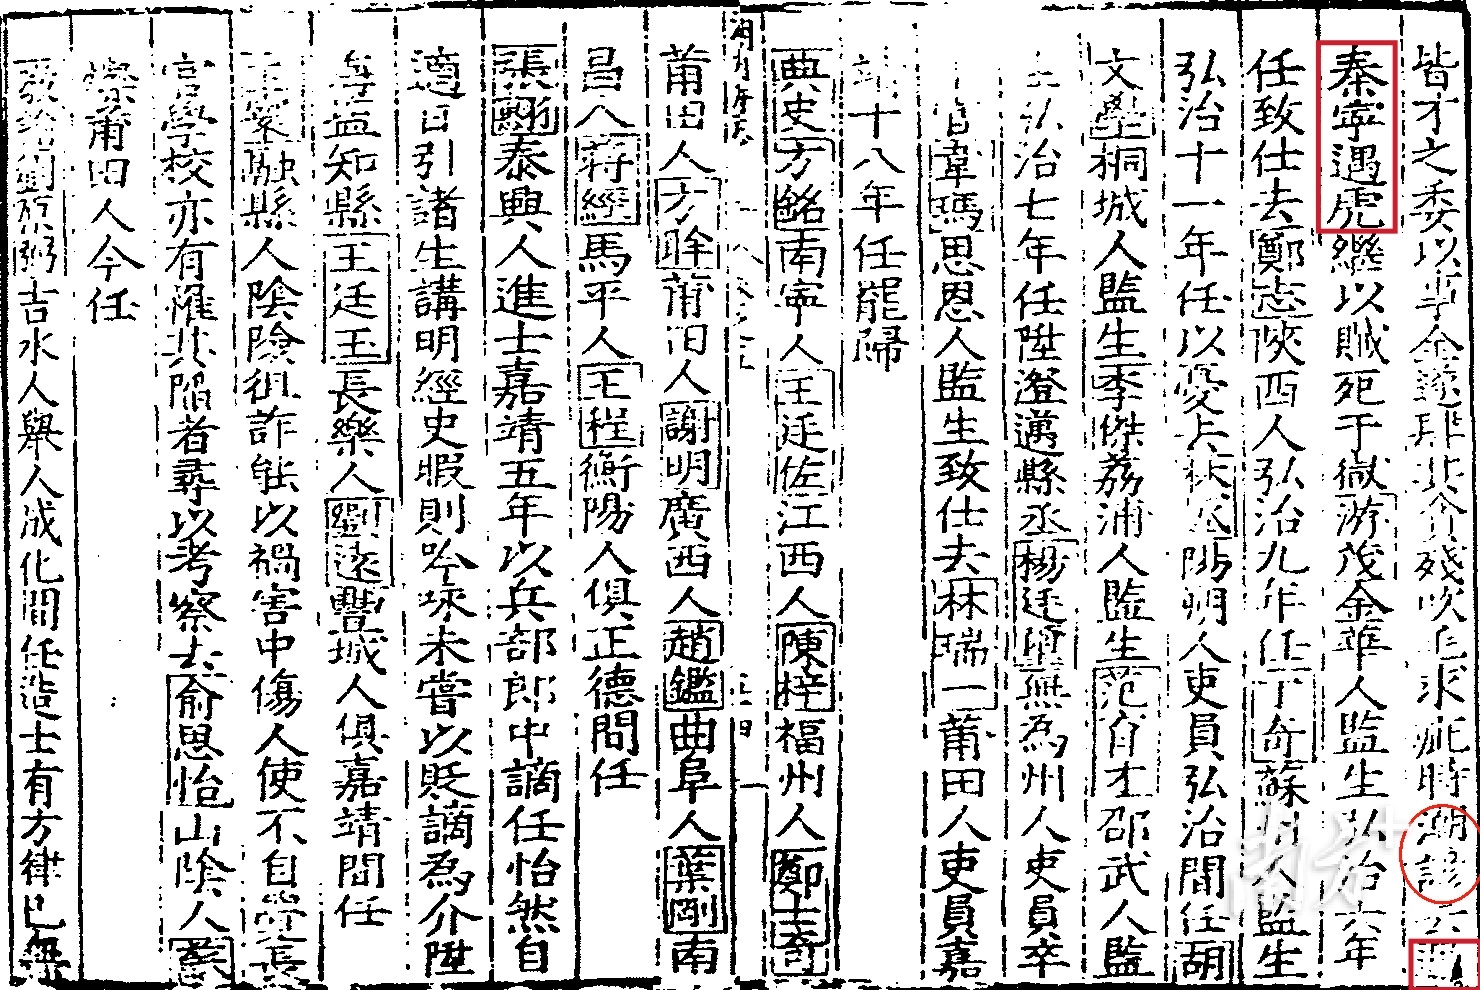 皆才之委以事金遂肆其介殘吹毛求疵時潮諺云
秦寧遇虎繼以賊死于獄游茂金華人監生弘治六年
任致仕去鄭志陝西人弘治九年任丁奇蘇州人監生
弘治十一年任以憂去林丞陽朔人吏員弘治間任胡
文學桐城人監生李傑荔浦人監生范자才邵武人監
生弘治七年任陞澄邁縣丞楊廷璽無為州人吏員卒
官韋瑪思恩人監生致仕去林瑞一莆田人吏員嘉
靖十八年任罷歸
典史方銘南寧人王廷佐江西人陳梓福州人鄭士奇
莆田人方晬莆田人謝明廣西人趙鑑曲阜人葉剛南
昌人蒋經馬平人王程衡陽人俱正德間任
張翮泰興人進士嘉靖五年以兵部郎中謫任怡然自
適日引諸生講明經史暇則吟咏未嘗以貶謫為介陞
無益知縣王廷玉長樂人劉遠豐城人俱嘉靖間任
融縣人陰險徂詐能以禍害中傷人使不自容長
官學校亦有罹其陷者尋以考察去俞思怡山陰人
燦莆田人今任
教諭劉宗弼吉水人舉人成化間任造士有方律已無
南方